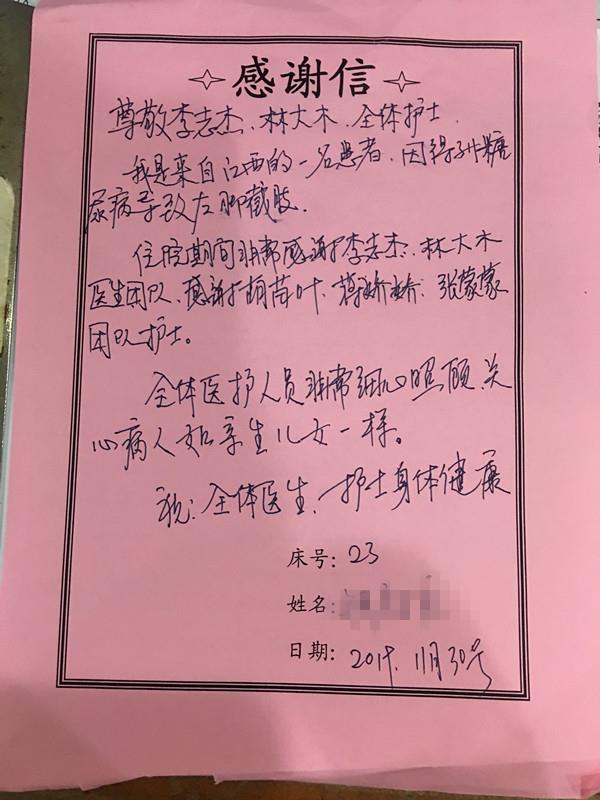 感谢信
尊敬李志杰、林大木、全体护士
我是来自江西的一名患者,因得了糖
尿病导致左脚截肢.
住院期间非常感谢李志杰、林大木
医生团队、感谢胡苗叶、娇娇、张蒙蒙
团队护士。
全体医护人员非常细心照顾关
心病人如亲生儿女一样。
祝:全体医生、护士身体健康
床号:23
姓名:
日期:2019.11月30号